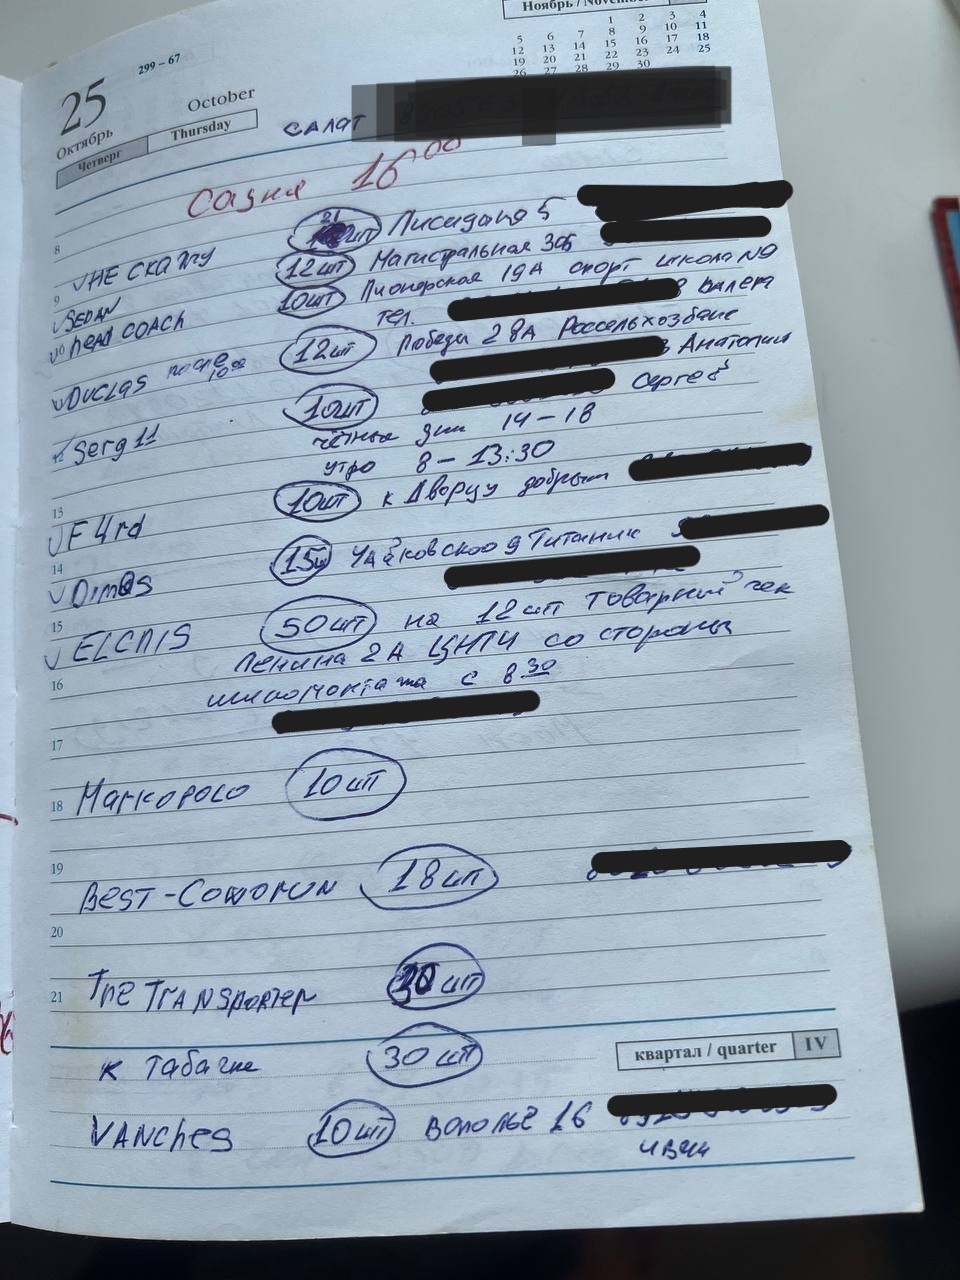 Ноябрь / November
1 2 3 4
5 6 7 8 9 10 11
12 13 14 15 16 17 18
19 20 21 22 23 24 25
26 27 28 29 30
299 – 67
25
October
Октябрь
Четверг Thursday
САЛАТ
16 00
8
НЕ СКАЖУ 21 шт 5
9 SEDAN 12 шт Магистральная
10 HEAD COACH 10 шт Пионерская 19А спорт школа №9
тел. Валера
DUCLAS после 10 00 12 шт Победы 28А Россельхозбанк
Анатолий
12 Serg 11 10 шт Сергей
чётные дни 14 – 18
утро 8 – 13:30
13 F4rd 10 шт к Дворцу добрыня
14 Dim@s 15 ш Чайковского 9 Титаник
15 ELCNIS 50 шт на 12 шт товарный чек
Ленина 2А ЦНТИ со стороны
16 шиномонтажа с 8 30
17
18 Маркоросо 10 шт
19
BEST- 18 шт
20
21 The TRANSPORTER шт
к табачке 30 шт
квартал / quarter IV
VANches 10 шт 16